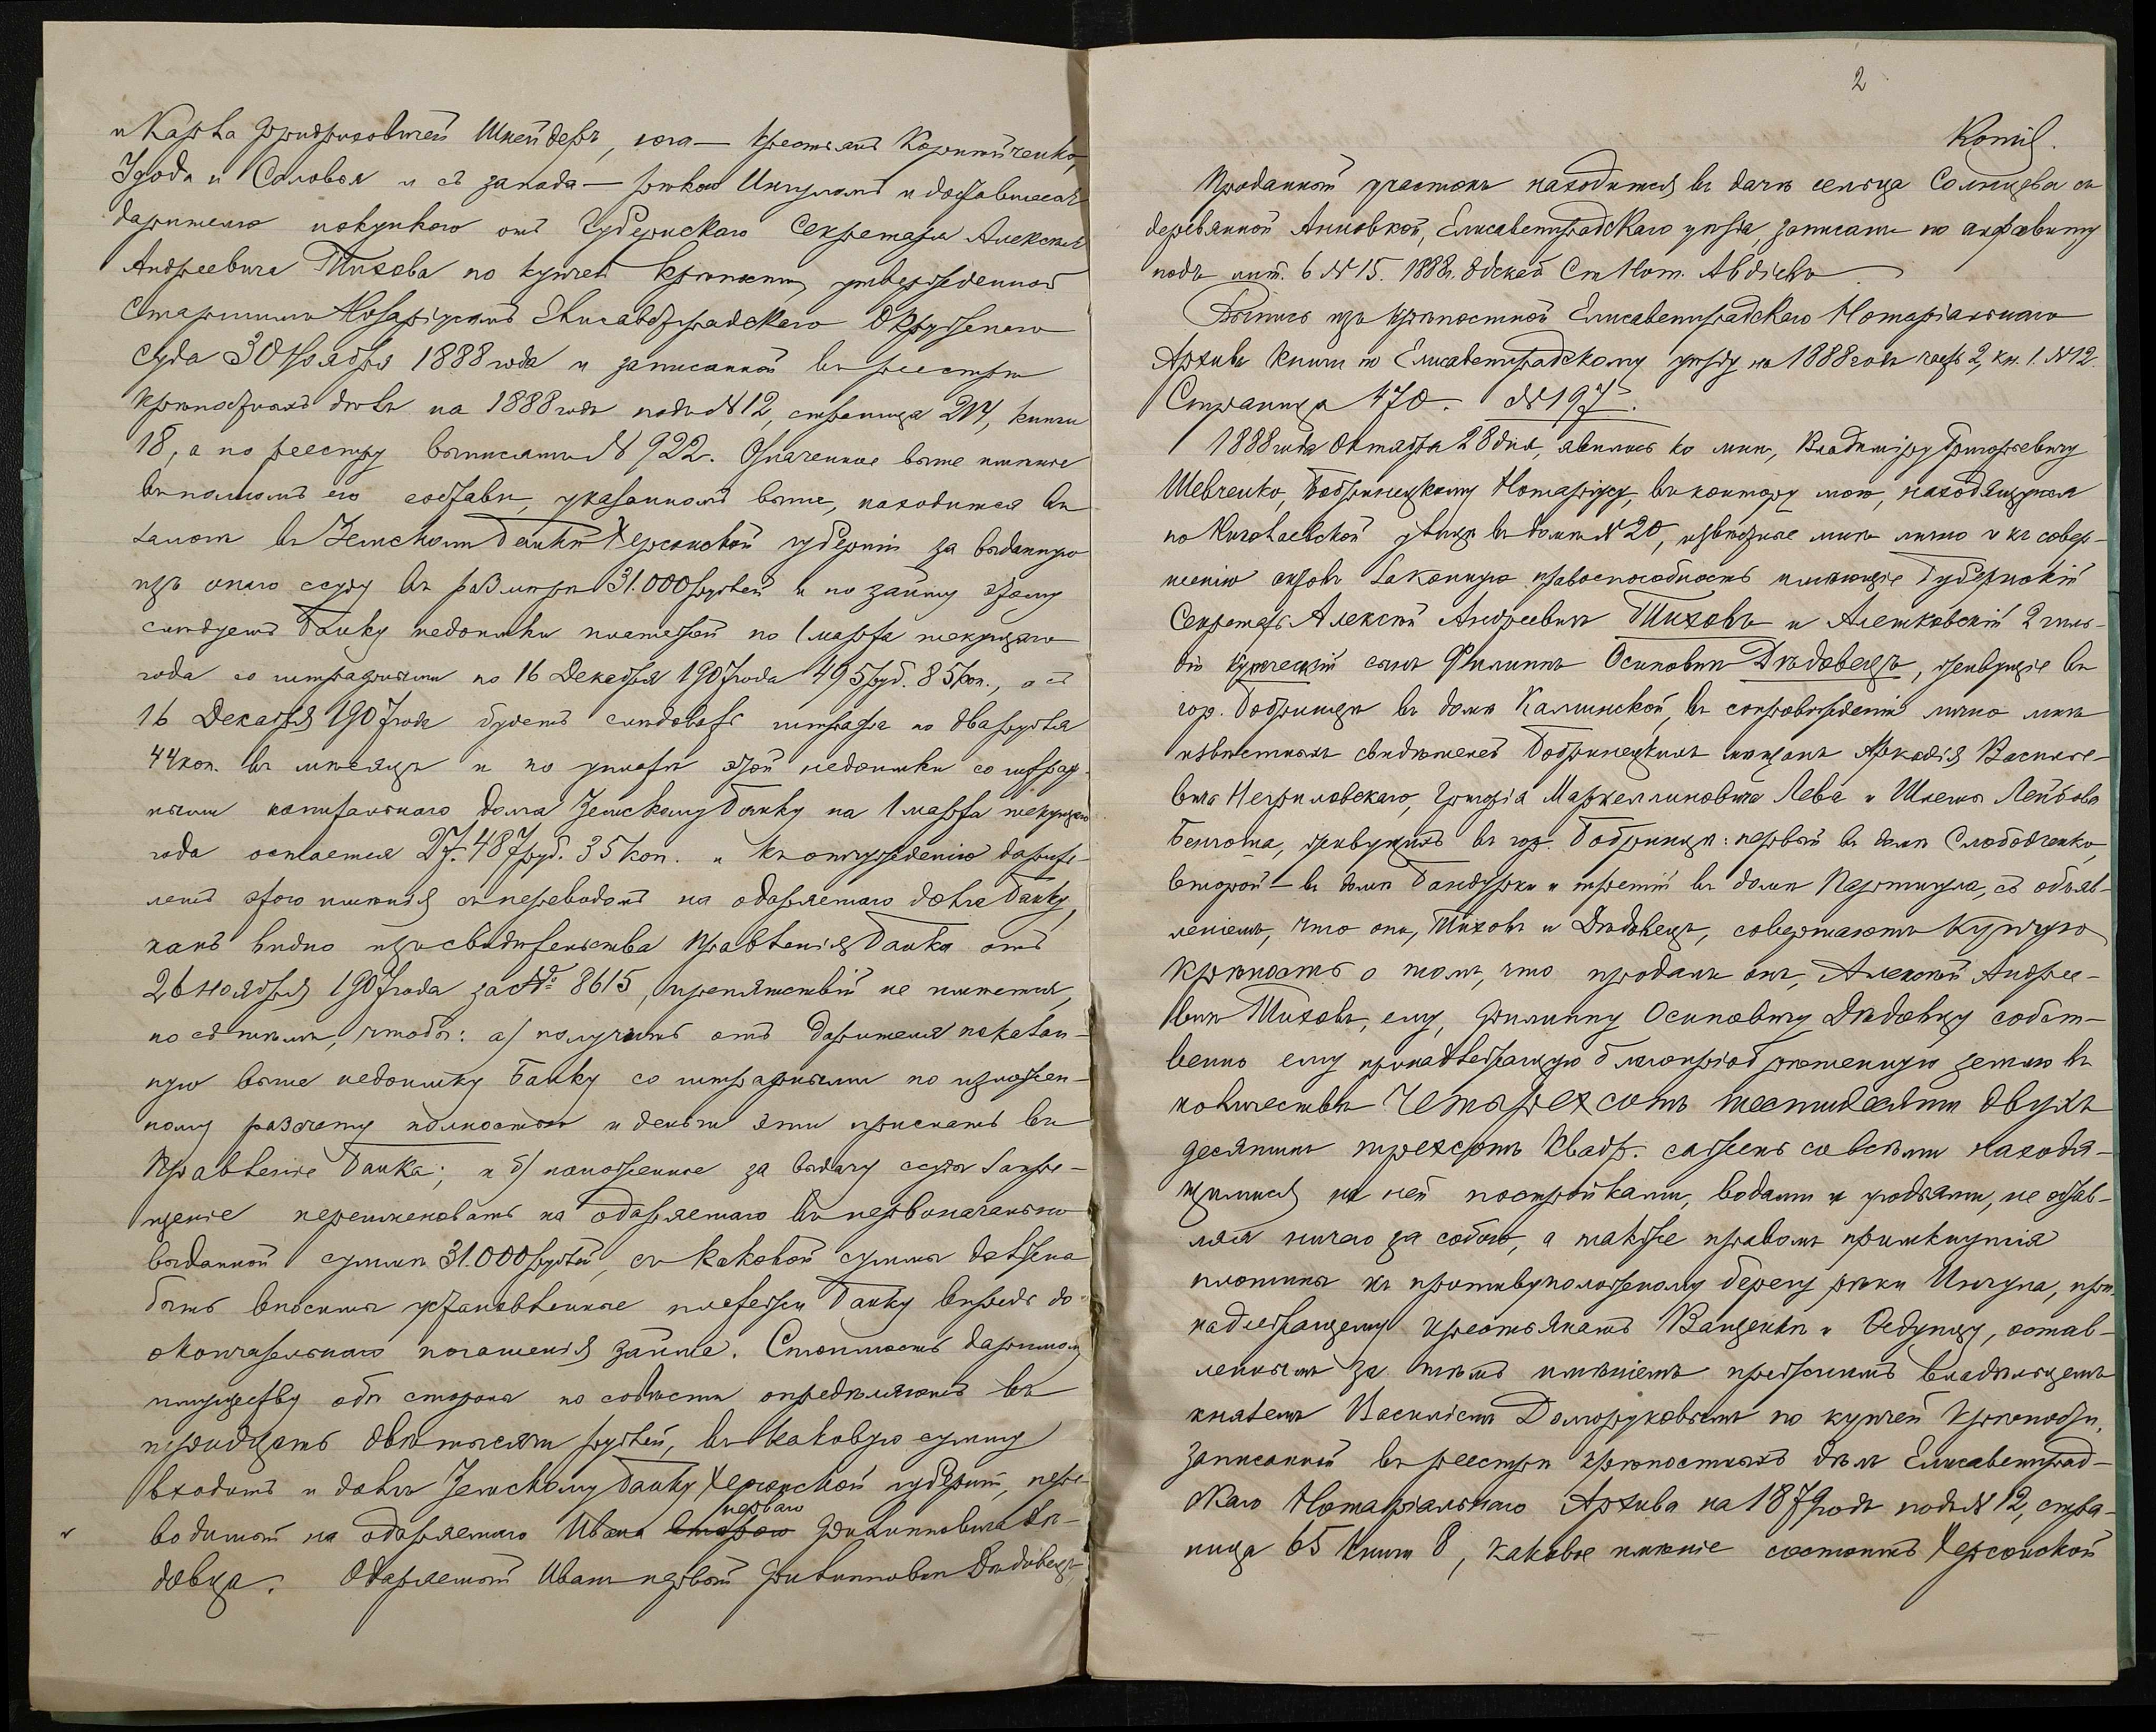 и Карла Фридриховичей Шнейдеръ, юга — крестьянъ Корнiйченко,
Згода и Соловья и съ запада — рѣкою Ингуломъ и доставшееся
дарителю покупкою отъ Губернскаго Секретаря Алексѣя
Андреевича Тихова по купчей крѣпости, утвержденной
Старшимъ Нотаріусомъ Елисаветградскаго Окружнаго
Суда 30 Ноября 1888 года и записанной въ реестрѣ
крѣпостныхъ дѣлъ на 1888 годъ подъ № 12, страница 214, книги
18, а по реестру выписаны № 922. Означенное выше имѣніе
въ полномъ его составѣ, указанномъ выше, находится въ
залогѣ въ Земскомъ Банкѣ Херсонской губерніи за выданную
изъ онаго ссуду въ размѣрѣ 31.000 рублей и по займу этому
слѣдуетъ Банку недоимки платежей по 1 марта текущаго
года со штрафными по 16 Декабря 1907 года 495 руб. 85 коп., а съ
16 Декабря 1907 года будетъ слѣдовать штрафа по два рубля
44 коп. въ мѣсяцъ и по уплатѣ этой недоимки со штраф-
ными капитальнаго долга Земскому Банку на 1 марта текущаго
года остается 27.487 руб. 35 коп. и къ отчужденію дарите-
лемъ этого имѣнія съ переводомъ на одаряемаго долга Банку,
какъ видно изъ свидѣтельства Правленія Банка отъ
26 Ноября 1907 года за № 8615, препятствій не имѣется,
но съ тѣмъ, чтобы: а) получить отъ дарителя показан-
ную выше недоимку Банку со штрафными по изложен-
ному разсчету полностью и деньги эти прислать въ
Правленіе Банка; и б) наложенное за выдачу ссуды запре-
щеніе переименовать на одаряемаго въ первоначально
выданной суммѣ 31.000 рублей, съ каковой суммы должна
быть вносима установленные платежи Банку впредь до
окончательнаго погашенія займа. Стоимость даримому
имуществу обѣ стороны по совѣсти опредѣляютъ въ
тридцать двѣ тысячи рублей, въ каковую сумму
входитъ и долгъ Земскому Банку Херсонской губерніи, пере-
первого
водимый на одаряемаго Ивана второго Филипповича Дѣ-
довца. Одаряемый Иванъ первый Филипповичъ Дѣдовецъ,
2
Копія.
Проданный участокъ находится въ дачѣ сельца Солнцева съ
деревянной Анновкой, Елисаветградскаго уѣзда, записанъ по алфавиту
подъ лит. 6 № 15. 1888 г. Ст. Нот. Авдѣевъ
Выпись изъ крѣпостной Елисаветградскаго Нотаріальнаго
Архива книги по Елисаветградскому уѣзду на 1888 годъ часть 2, кн. 1. № 12.
Страница 470. № 197.
1888 года Октября 28 дня, явились ко мнѣ, Владиміру Григорьевичу
Шевченко, Бобринецкому Нотаріусу, въ контору мою, находящуюся
по Николаевской улицѣ въ домѣ № 20, извѣстные мнѣ лично и къ совер-
шенію актовъ законную правоспособность имѣющіе Губернскій
Секретарь Алексѣй Андреевичъ Тиховъ и Алешковскій 2 гиль-
діи купеческій сынъ Филиппъ Осиповичъ Дѣдовецъ, живущіе въ
гор. Бобринцѣ въ домѣ Калинской, въ сопровожденіи лично мнѣ
извѣстныхъ свидѣтелей Бобринецкихъ мѣщанъ Аркадія Василье-
вича Негриловскаго, Григорія Маркеллиновича Лева и Шлемы Лейбова
живущихъ въ гор. Бобринцѣ: первый въ домѣ Слободченко,
второй — въ домѣ Бандурки и третій въ домѣ съ объяв-
леніемъ, что они, Тиховъ и Дѣдовецъ, совершаютъ купчую
крѣпость о томъ, что продалъ онъ, Алексѣй Андрее-
вичъ Тиховъ, ему, Филиппу Осиповичу Дѣдовцу собст-
венно ему принадлежащую благопріобрѣтенную землю въ
количествѣ Четырехсотъ шестидесяти двухъ
десятинъ трехсотъ квадр. сажень со всѣми находя-
щимися на ней постройками, водами и угодьями, не остав-
ляя ничего за собою, а также правомъ примкнутія
плотины къ противуположному берегу рѣки Ингула, при-
надлежащему крестьянамъ Ващенкѣ и Федунцу, остав-
леннымъ за тѣмъ имѣніемъ прежнимъ владѣльцемъ
княземъ Василіемъ Долгоруковымъ по купчей крѣпости,
записанной въ реестрѣ крѣпостныхъ дѣлъ Елисаветград-
скаго Нотаріальнаго Архива на 1879 годъ подъ № 12, стра-
ница 65 книги 8, каковое имѣніе состоитъ Херсонской